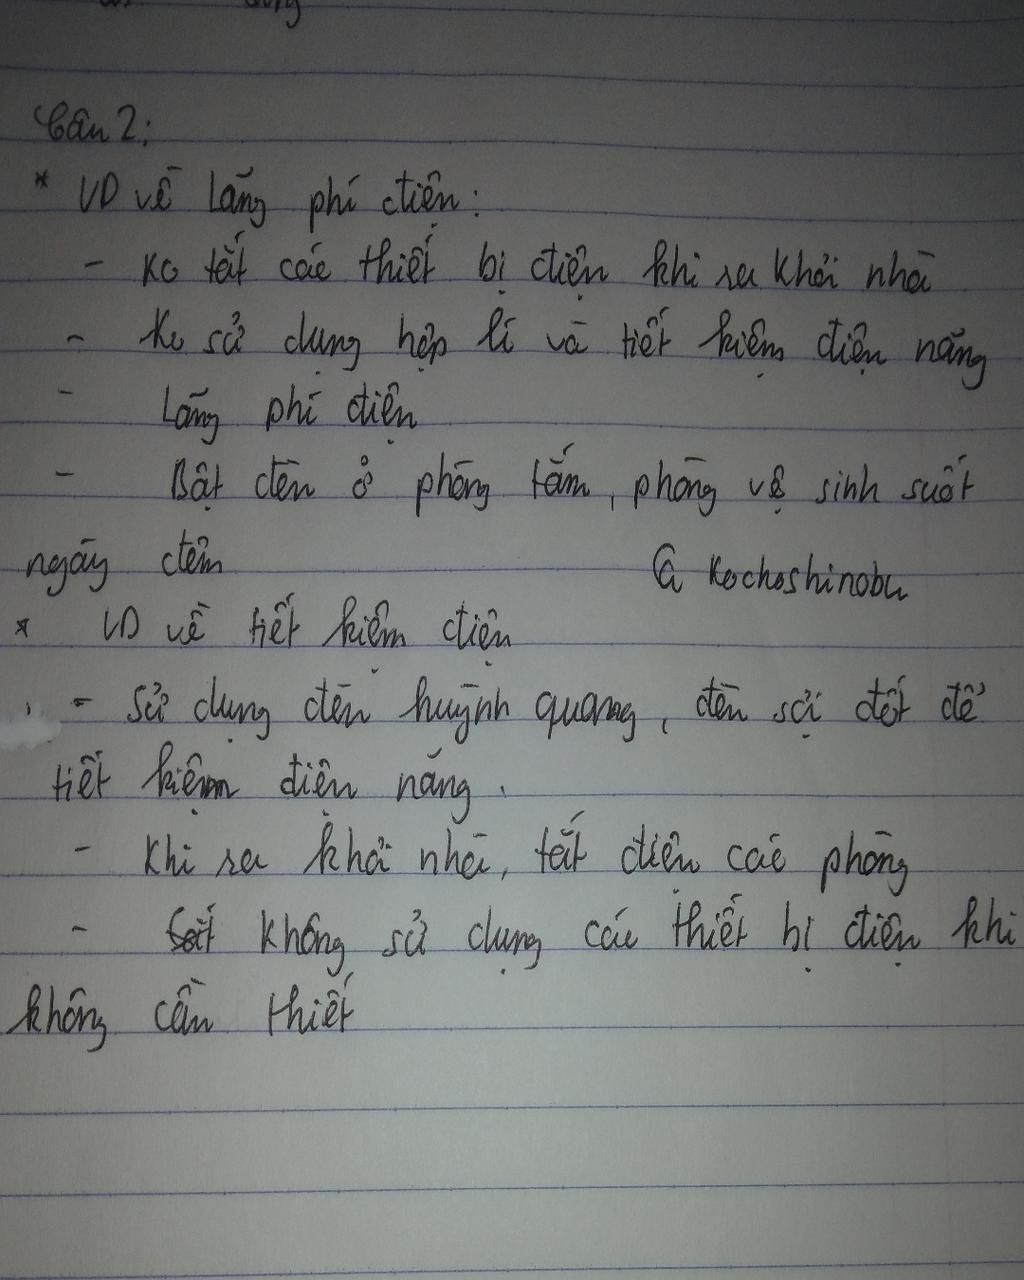 Câu 2:
* VD về lãng phí điện:
- Ko tắt các thiết bị điện khi ra khỏi nhà
- Ko sử dụng hợp lí và tiết kiệm điện năng
- Lãng phí điện
- Bật đèn ở phòng tắm, phòng vệ sinh suốt
ngày đêm
@ Kochoshinobu
* VD về tiết kiệm điện
- Sử dụng đèn huỳnh quang, đèn sợi đốt để
tiết kiệm điện năng.
- Khi ra khỏi nhà, tắt điện các phòng
- không sử dụng các thiết bị điện khi
không cần thiết